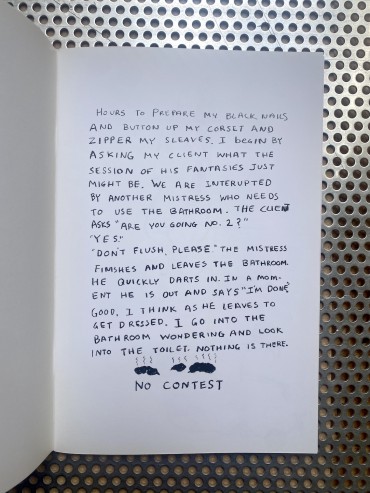 HOURS TO PREPARE MY BLACK NAILS
AND BUTTON UP MY CORSET AND
ZIPPER MY SLEAVES. I BEGIN BY
ASKING MY CLIENT WHAT THE
SESSION OF HIS FANTASIES JUST
MIGHT BE. WE ARE INTERUPTED
BY ANOTHER MISTRESS WHO NEEDS
TO USE THE BATHROOM. THE CLIENT
ASKS "ARE YOU GOING NO. 2?"
"YES."
"DON'T FLUSH, PLEASE." THE MISTRESS
FINISHES AND LEAVES THE BATHROOM.
HE QUICKLY DARTS IN. IN A MOM-
ENT HE IS OUT AND SAYS "I'M DONE."
GOOD, I THINK AS HE LEAVES TO
GET DRESSED. I GO INTO THE
BATHROOM WONDERING AND LOOK
INTO THE TOILET. NOTHING IS THERE.
NO CONTEST